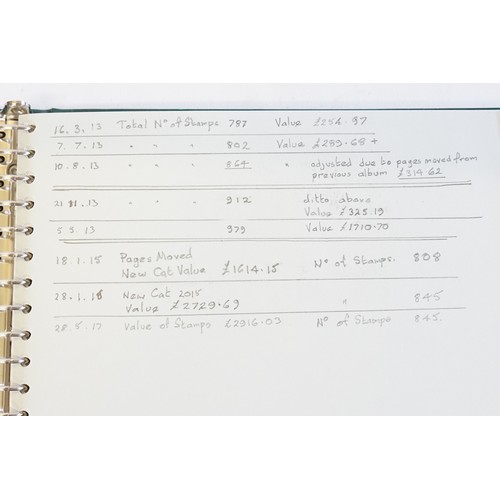 16.3.13 Total No of Stamps 787 Value £254-97
7.7.13 " " " 802 Value £289.68 +
10.8.13 " " " 864 " adjusted due to pages moved from
previous album £314.62
21.11.13 " " " 912 ditto above
Value £325.19
5.5.13 979 Value £1710-70
18.1.15 Pages Moved
New Cat Value £1614.15 No of Stamps. 808
28.1.16 New Cat 2015
Value £2729.69 " 845
28.5.17 Value of Stamps £2916-09 No of Stamps 845.